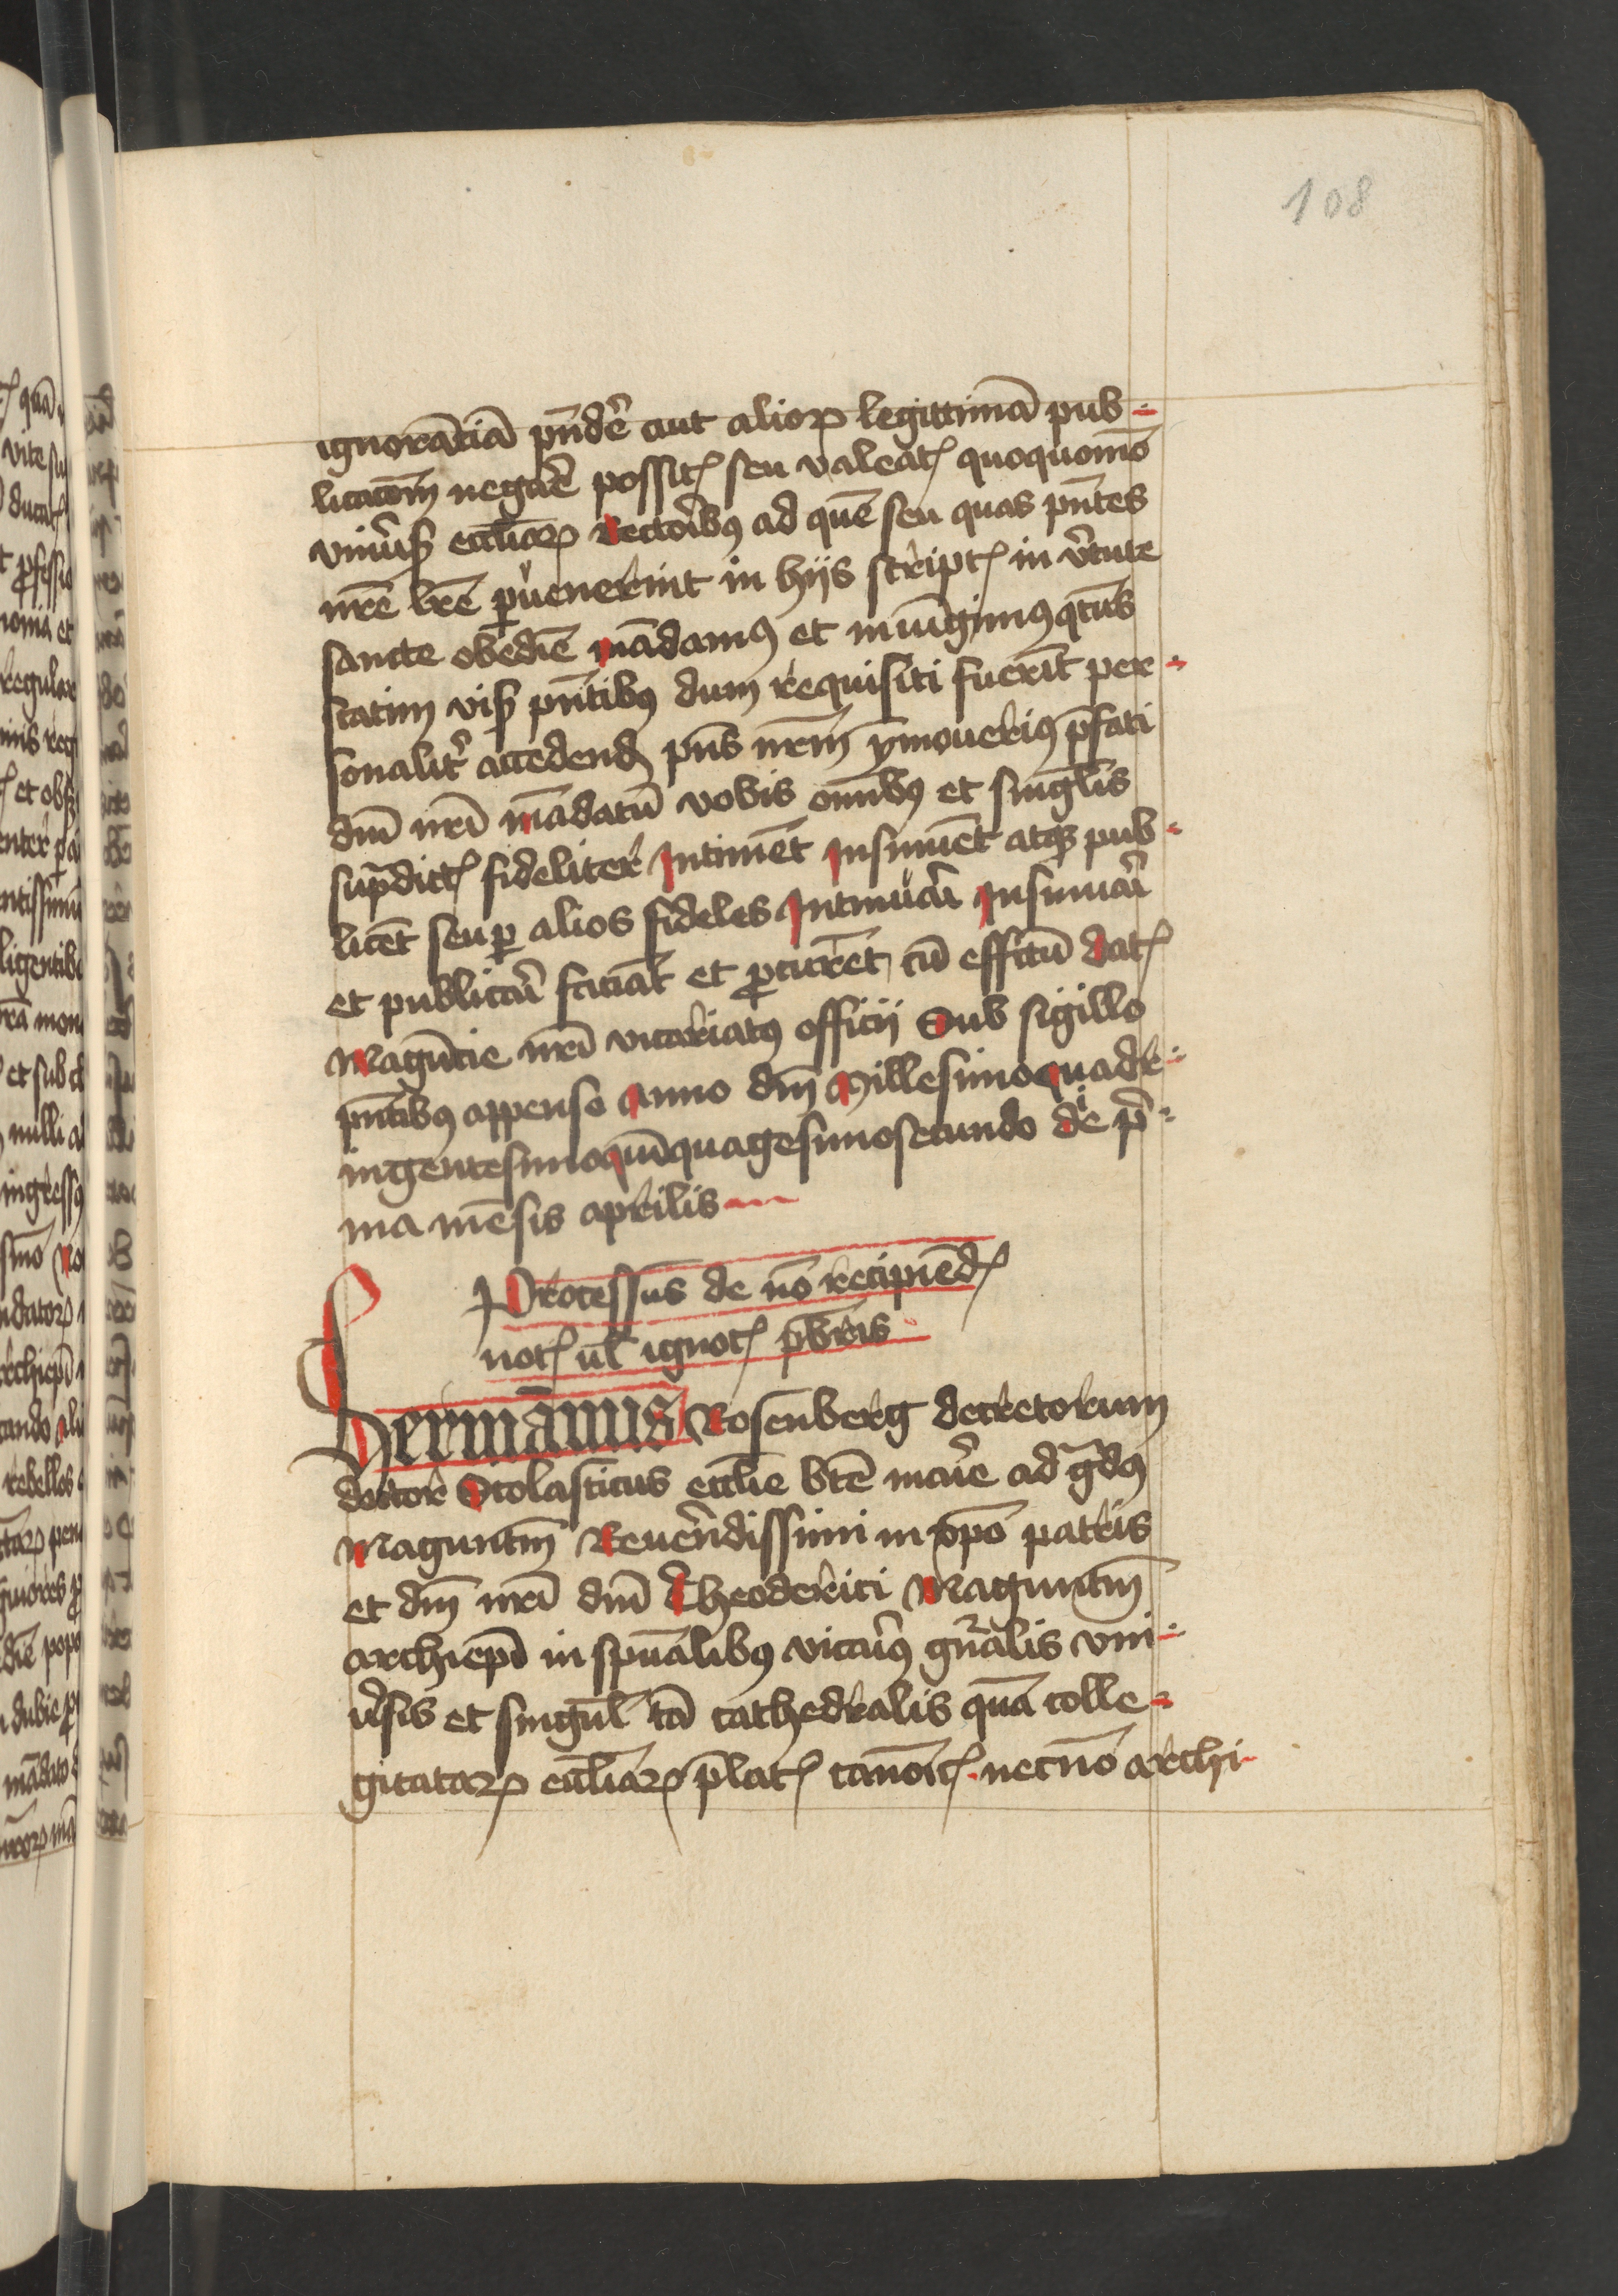 108
ignorātiā pn̄dē aut alioꝝ legittimā pub-
licacōm negāe possitꝭ seu valeatꝭ quoquomō
vniūsꝭ eccliaꝝ Rectoribꝰ ad quē seu quas pn̄tes
nr̄e lr̄e ꝑuenerint in hijs scriptꝭ in v̄tute
sancte obedīe mādamꝰ et iniūgimꝰ qtn̄s
statim visꝭ pn̄tibꝰ dum requisiti fuerīt per-
sonalit̄ accedendꝭ pn̄s nr̄m ymouerius p̄fati
dn̄i nr̄i mādatū vobis om̄ibꝰ et singl̄is
sup̄dictꝭ fideliter Intiment Insinuēt atqꝫ pub-
licēt seu ꝑ alios fideles Intimāi Insinuāi
et publicāi faciāt et ꝓcurēt cū effctū datꝭ
Magūtie nr̄i vicariatꝰ officij Sub sigillo
pn̄tibꝰ appenso Anno dn̄i Millesimoquadr-
ingentesimoquīquagesimosecundo die p̄-
ma mēsis aprilis
Processus de nō recipiēdꝭ
notꝭ vl̄ ignotꝭ pb̄ris
Hermānus Rosenberg decretorum
doctor Scolasticus eccl̄ie bt̄e marīe ad gᵃdꝰ
Maguntn̄ Reuerēdissimi in xp̄o patris
et dn̄i nr̄i dn̄i Theoderici Maguntn̄
archiep̄i in spūalibꝰ vicariꝰ gn̄ralis vni-
u̇sis et singul̄ tā cathedralis quā colle-
giatarꝝ eccl̄iaꝝ p̄latꝭ canoīcꝭ necnō archi-